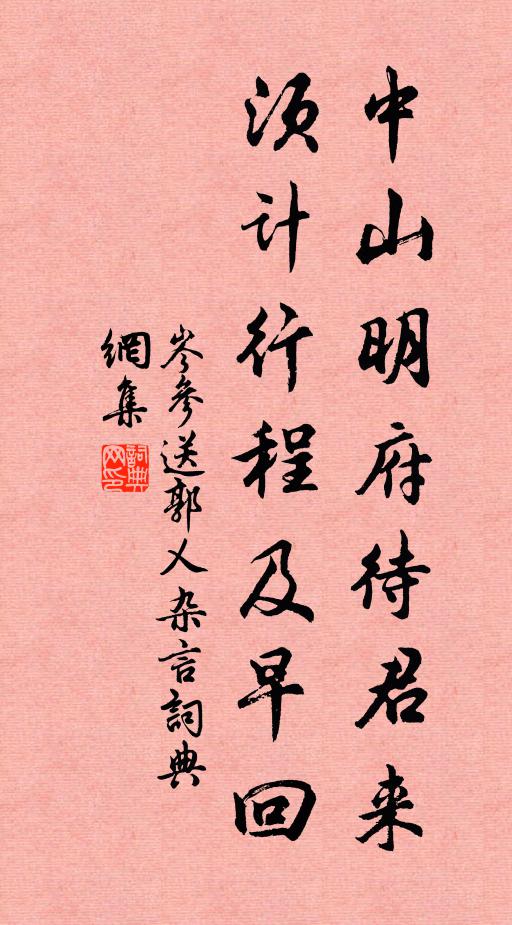 中山明府待君来
须计行程及早回
岑参送郭乂杂言詞典
網集
詞典網印